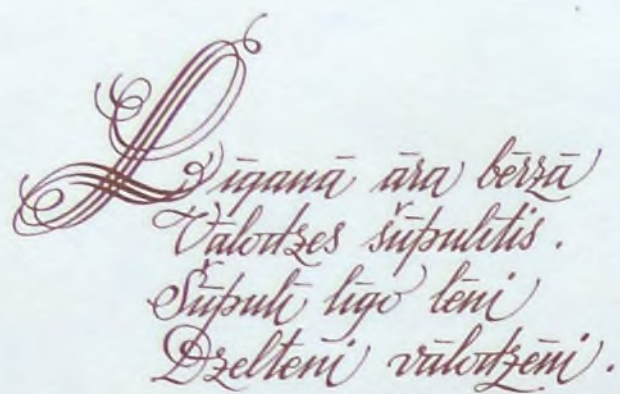 Līganā āra bērzā
Vālodzes šūpulītis.
Šūpulī līgo lēni
Dzelteni vālodzēni.